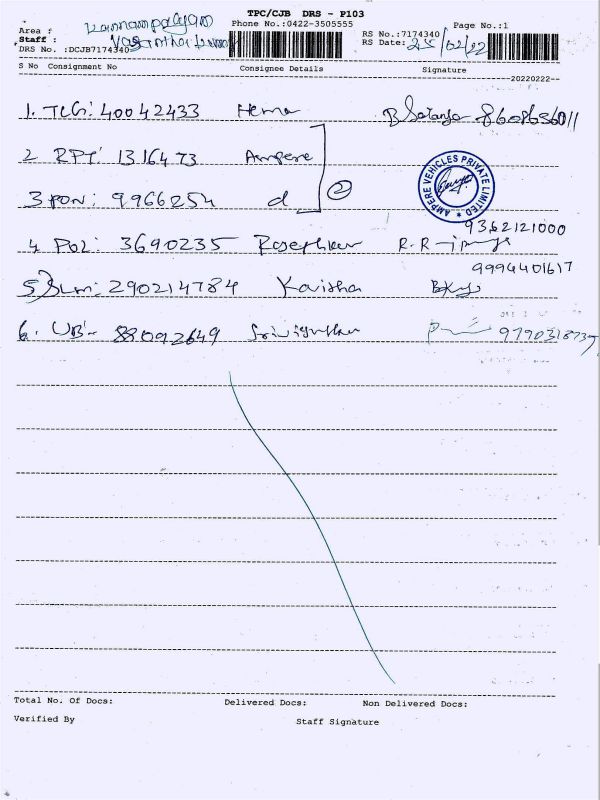 TPC/CJB DRS - P103
Area : Kannampalayam
Phone No.:0422-3505555
Page No.:1
Staff :
RS No.:7174340
DRS No. :DCJB7174340
RS Date: 25/02/22
S No Consignment No Consignee Details Signature
--20220222--
1. TLG: 40042433 Hema 8608636011
2 RPT: 1316473 Ampere
3 PON: 9966254 d 2
AMPERE VEHICLES PRIVATE LIMITED
9362121000
4 POL: 3690235
9994401617
5 SLM: 290214784 Kavitha
6. UB- 88092649
Total No. Of Docs: Delivered Docs: Non Delivered Docs:
Verified By Staff Signature